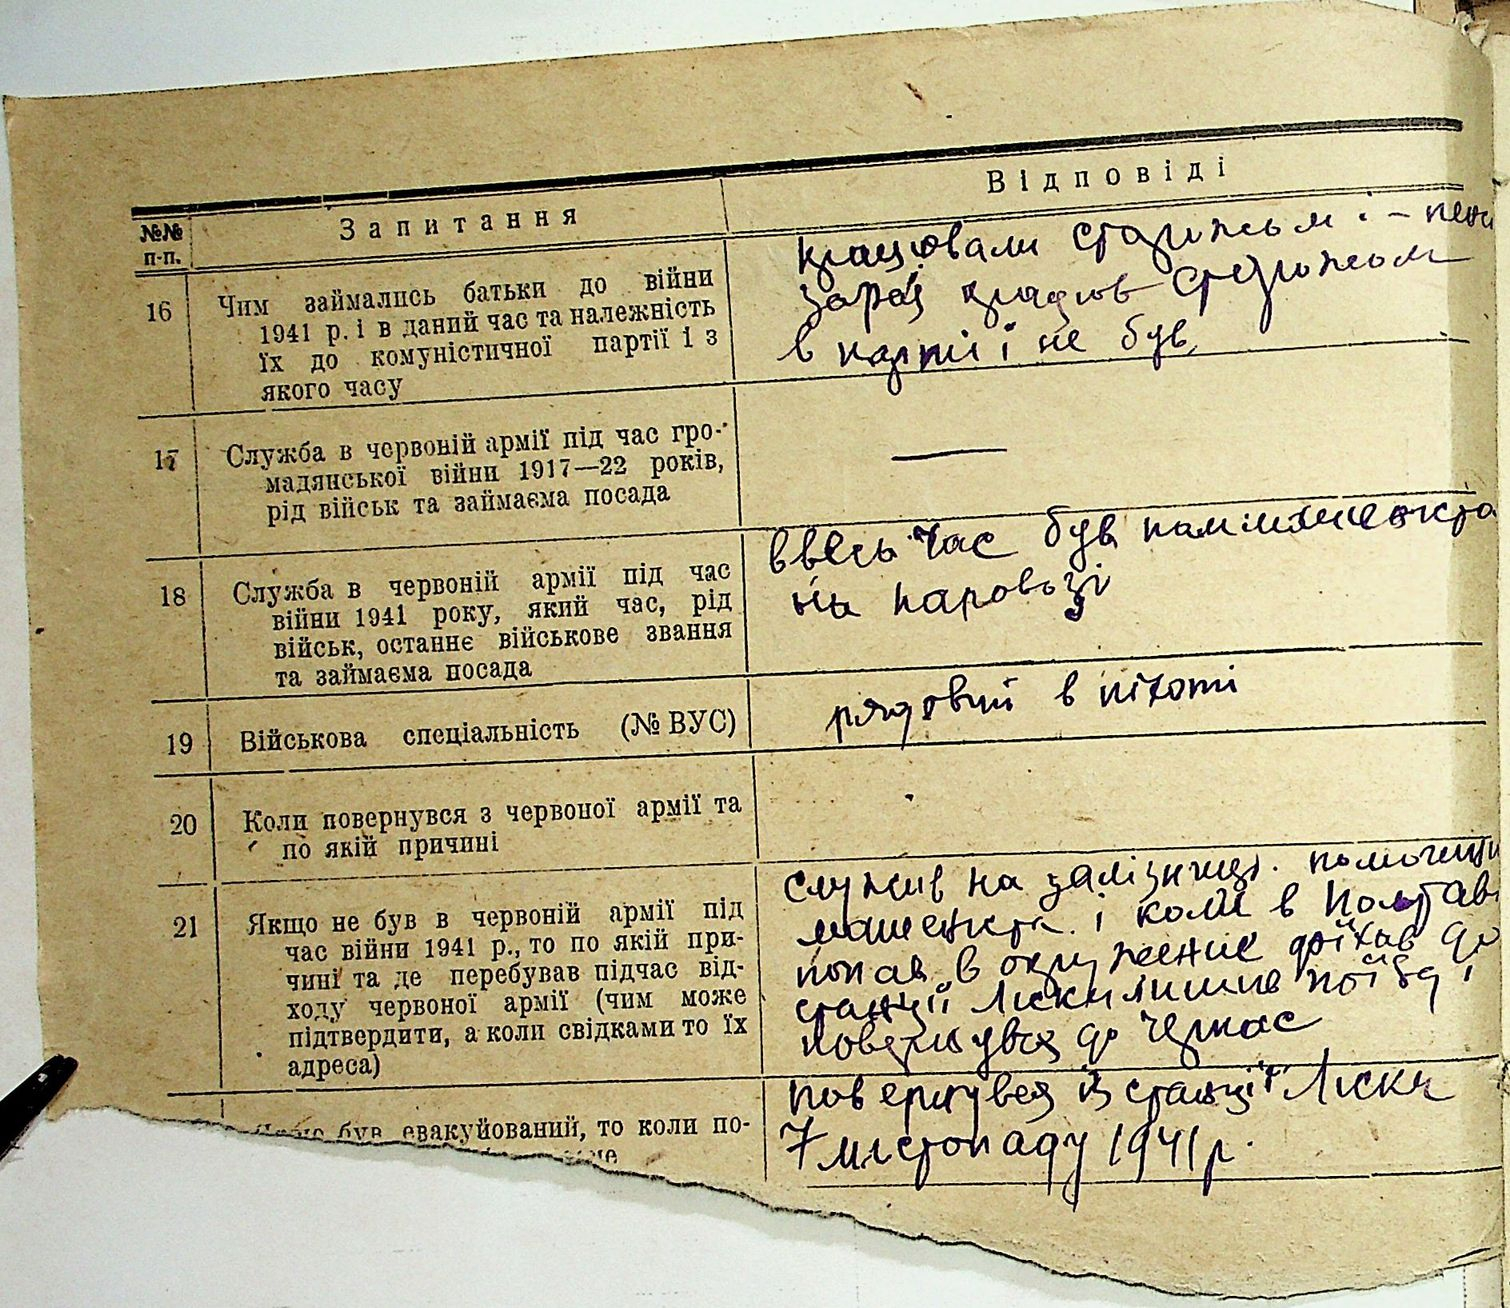 №№ п-п.
Запитання
Відповіді
16
Чим займались батьки до війни
1941 р. і в даний час та належність
їх до комуністичної партії і з
якого часу
працювали сторожем і -
зараз працює сторожем
в партії не був
17
Служба в червоній армії під час гро-
мадянської війни 1917—22 років,
рід військ та займаєма посада
—
18
Служба в червоній армії під час
війни 1941 року, який час, рід
військ, останнє військове звання
та займаєма посада
ввесь час був
на паровозі
19
Військова спеціальність (№ ВУС)
рядовий в піхоті
20
Коли повернувся з червоної армії та
по якій причині
21
Якщо не був в червоній армії під
час війни 1941 р., то по якій при-
чині та де перебував підчас від-
ходу червоної армії (чим може
підтвердити, а коли свідками то їх
адреса)
служив на залізниці.
машениста і коли в Полтаві
попав в окружение доїхав до
станції Ліски лишив поїзд і
повернувся до Черкас
був евакуйований, то коли по-
повернувся із станції Ліски
7 листопаду 1941 р.